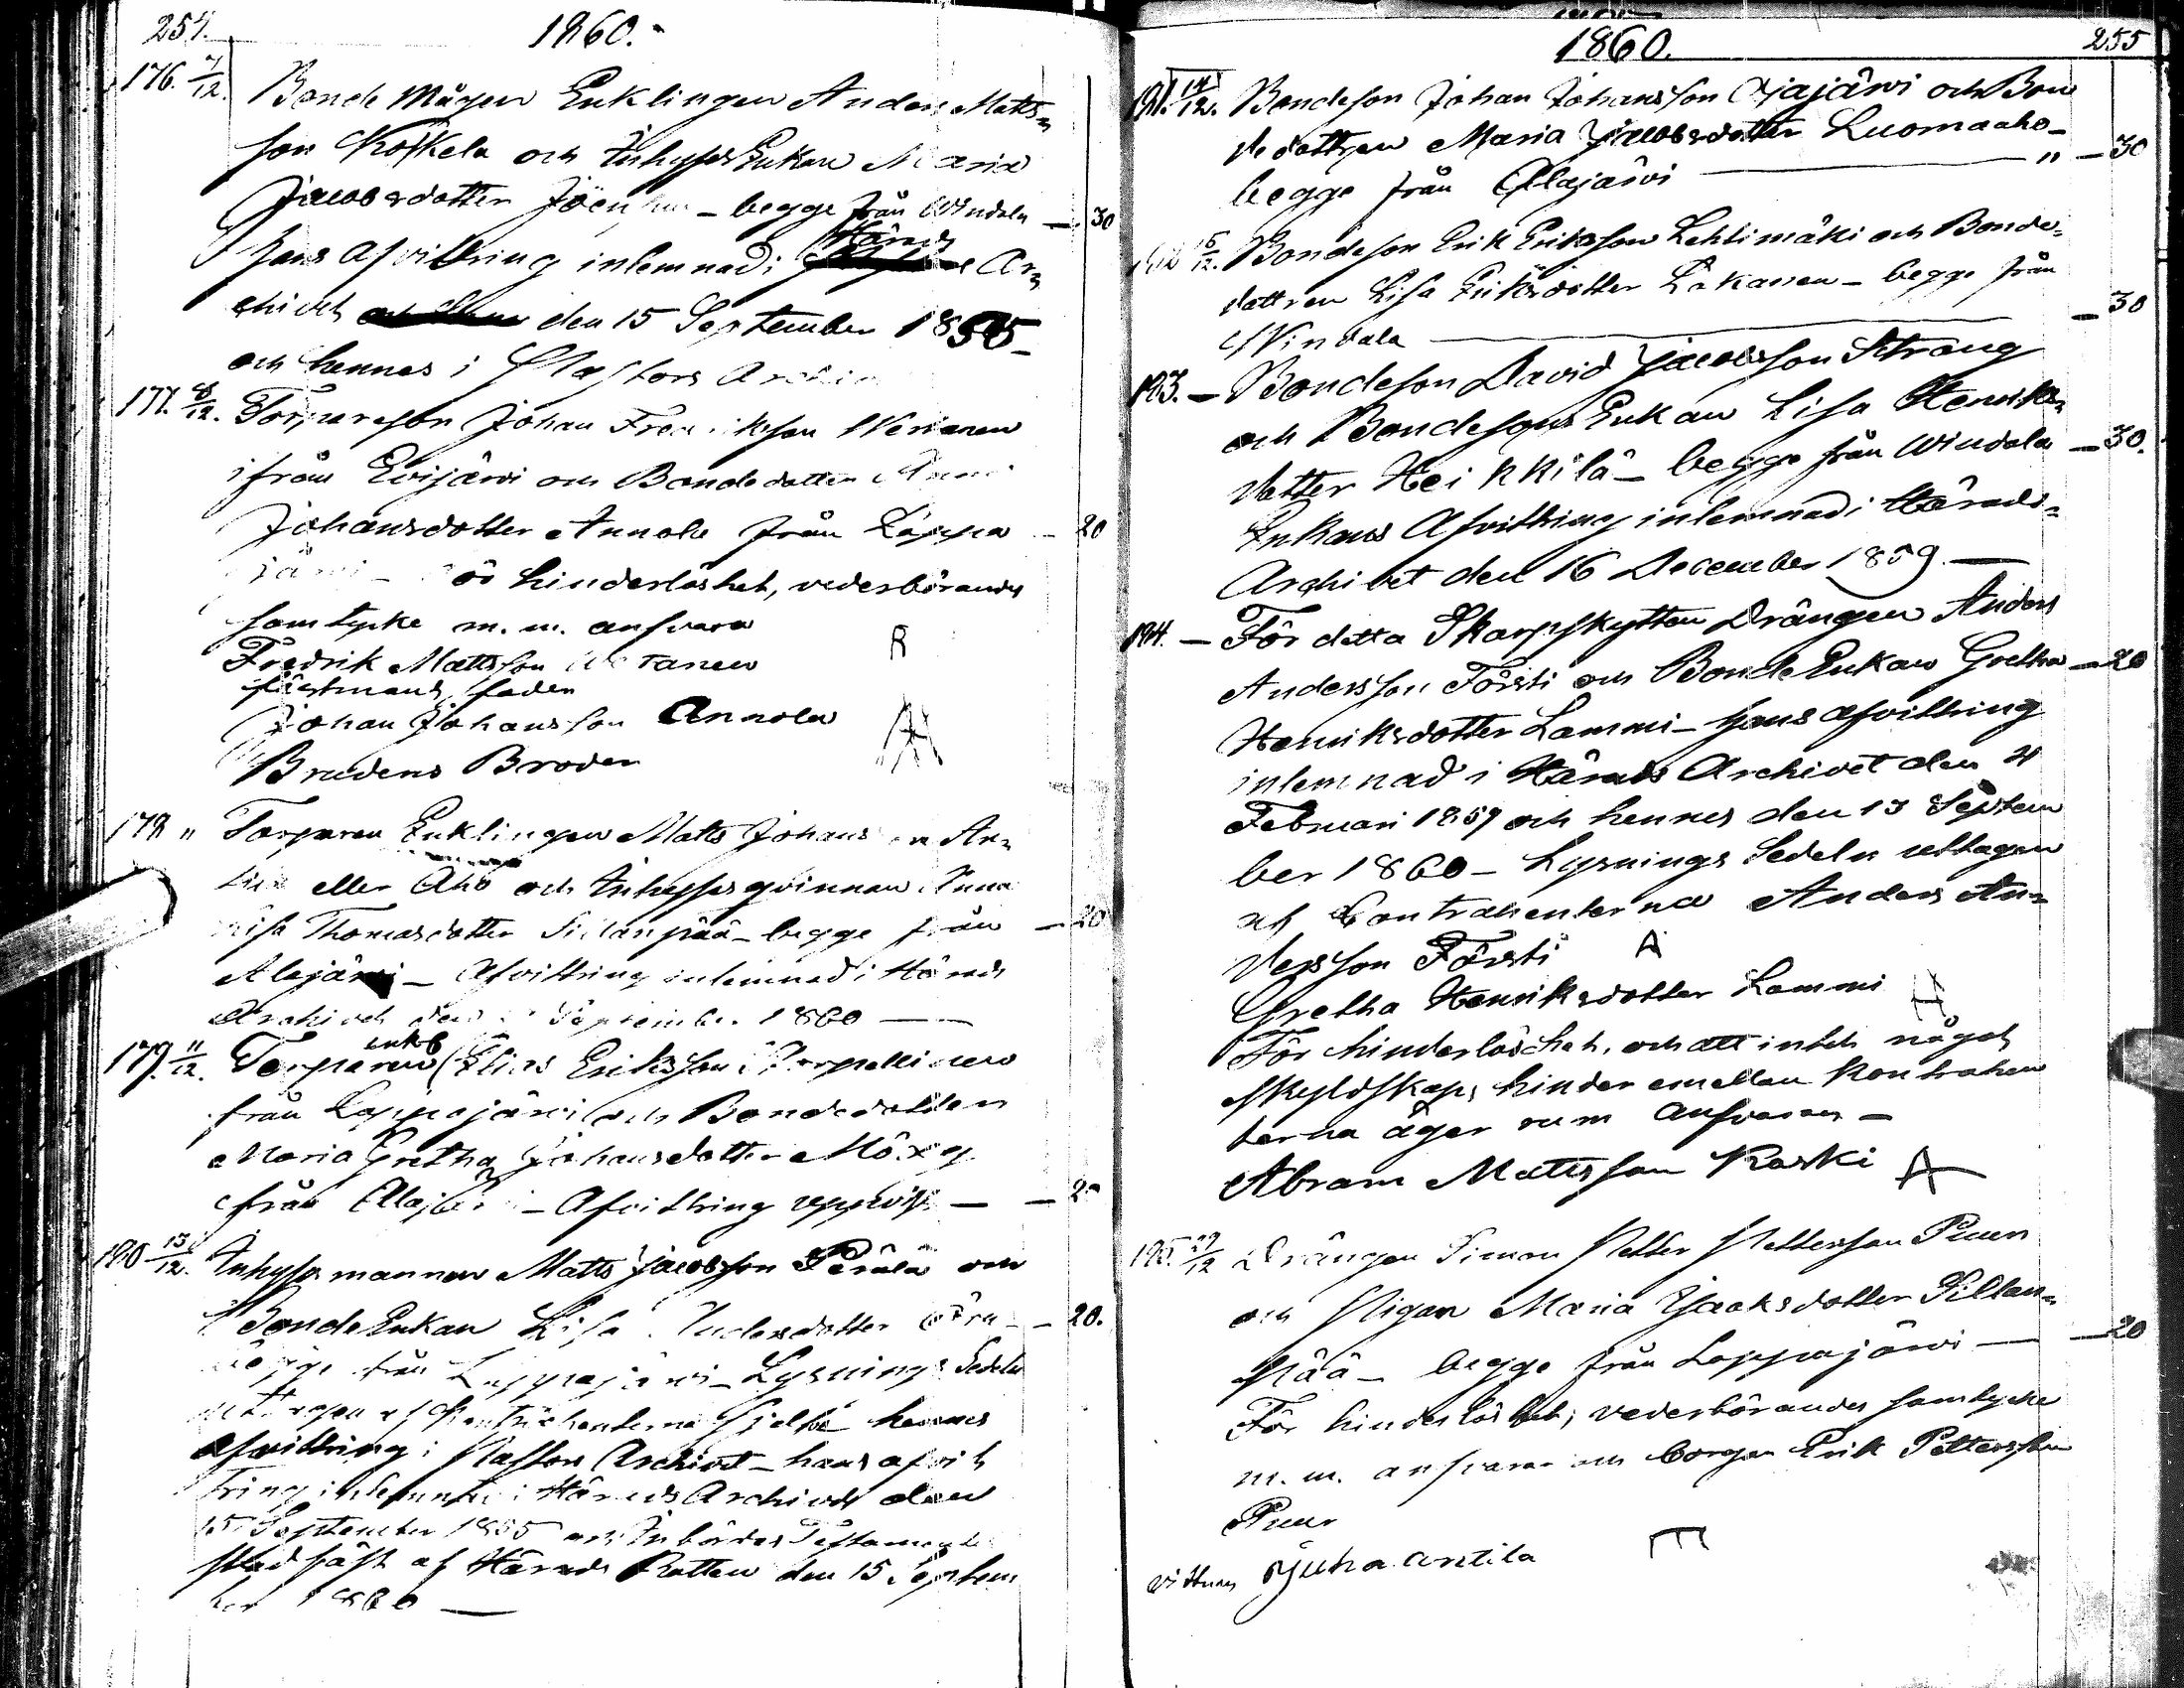 254.
1860.
176. 7/12. Bonde Mågen Enklingen Anders Matts=
son Koskela och Inhyses Enkan Maria
Jacobsdotter begge från Windala — 30
Hans afvittring inlemnad i Härads Ar=
chivet den 15 September 1855
och hennes i Pastors Archiv
177. 8/12. Torpareson Johan Fredrikson
ifrån Evijärvi och Bondedottren Anna
Johansdotter Annola från Lappa — 20
järvi - För hinderlöshet, vederbörandes
samtycke m.m. ansvara
Fredrik Mattsson
fästmans fader
Johan Johansson Annola
Brudens Broder
178 " Torparen Enklingen Matts Johansson An=
eller Aho och Inhyses qvinnan Anna
Lisa Thomasdotter Sillanpää - begge från — 20
Alajärvi - Afvittring inlemnad i Härads
Archivet den September 1860 —
179. 11/12. Torparen enkl Elias Eriksson
från Lappajärvi och Bondedottren
Maria Gretha Johansdotter
från Alajärvi - Afvittring uppvist — — 20
180 13/12. Inhyses mannen Matts Jacobsson Perälä och
Bonde Enkan Lisa Andersdotter — 20.
begge från Lappajärvi - Lysnings Sedeln
uttagen af Kontrahenterna sjelfva - hennes
afvittring i Pastors Archivet - hans afvit
tring inlemnad i Härads Archivet den
15 September 1855 och Inbördes Testamente
stadfäst af Härads Rätten den 15 Septem
ber 1860 —
1860.
255
181. 14/12. Bondeson Johan Johansson Ojajärvi och Bon
dedottren Maria Jacobsdotter Luomaaho -
begge från Alajärvi — " — 30
182 15/12. Bondeson Erik Eriksson Lehtimäki och Bonde=
dottren Lisa Eriksdotter Lakanen - begge från
Windala — — 30
183. — Bondeson David Jacobsson Strang
och Bondesons Enkan Lisa Henriks=
dotter Heikkilä - begge från Windala — 30.
Enkans Afvittring inlemnad i Härads=
Archivet den 16 December 1859. —
184. — För detta Skarpskytten Drängen Anders
Andersson Försti och Bonde Enkan Gretha — 20
Henriksdotter Lammi - hans afvittring
inlemnad i Härads Archivet den 4
Februari 1859 och hennes den 13 Septem
ber 1860 - Lysnings Sedeln uttagen
af Contrahenterna Anders An=
dersson Försti
Gretha Henriksdotter Lammi
För hinderlöshet, och att intet något
skyldskaps hinder emellan Kontrahen
terna äger rum ansvarar —
Abram Mattsson Koski
185. 29/12 Drängen Simon Petter Pettersson Puur
och Pigan Maria Jaaksdotter Sillan=
pää - begge från Lappajärvi — — 20
För hinderlöshet, vederbörandes samtycke
m.m. ansvarar och borgar Erik Pettersson
Puur
vittnar Juha Antila